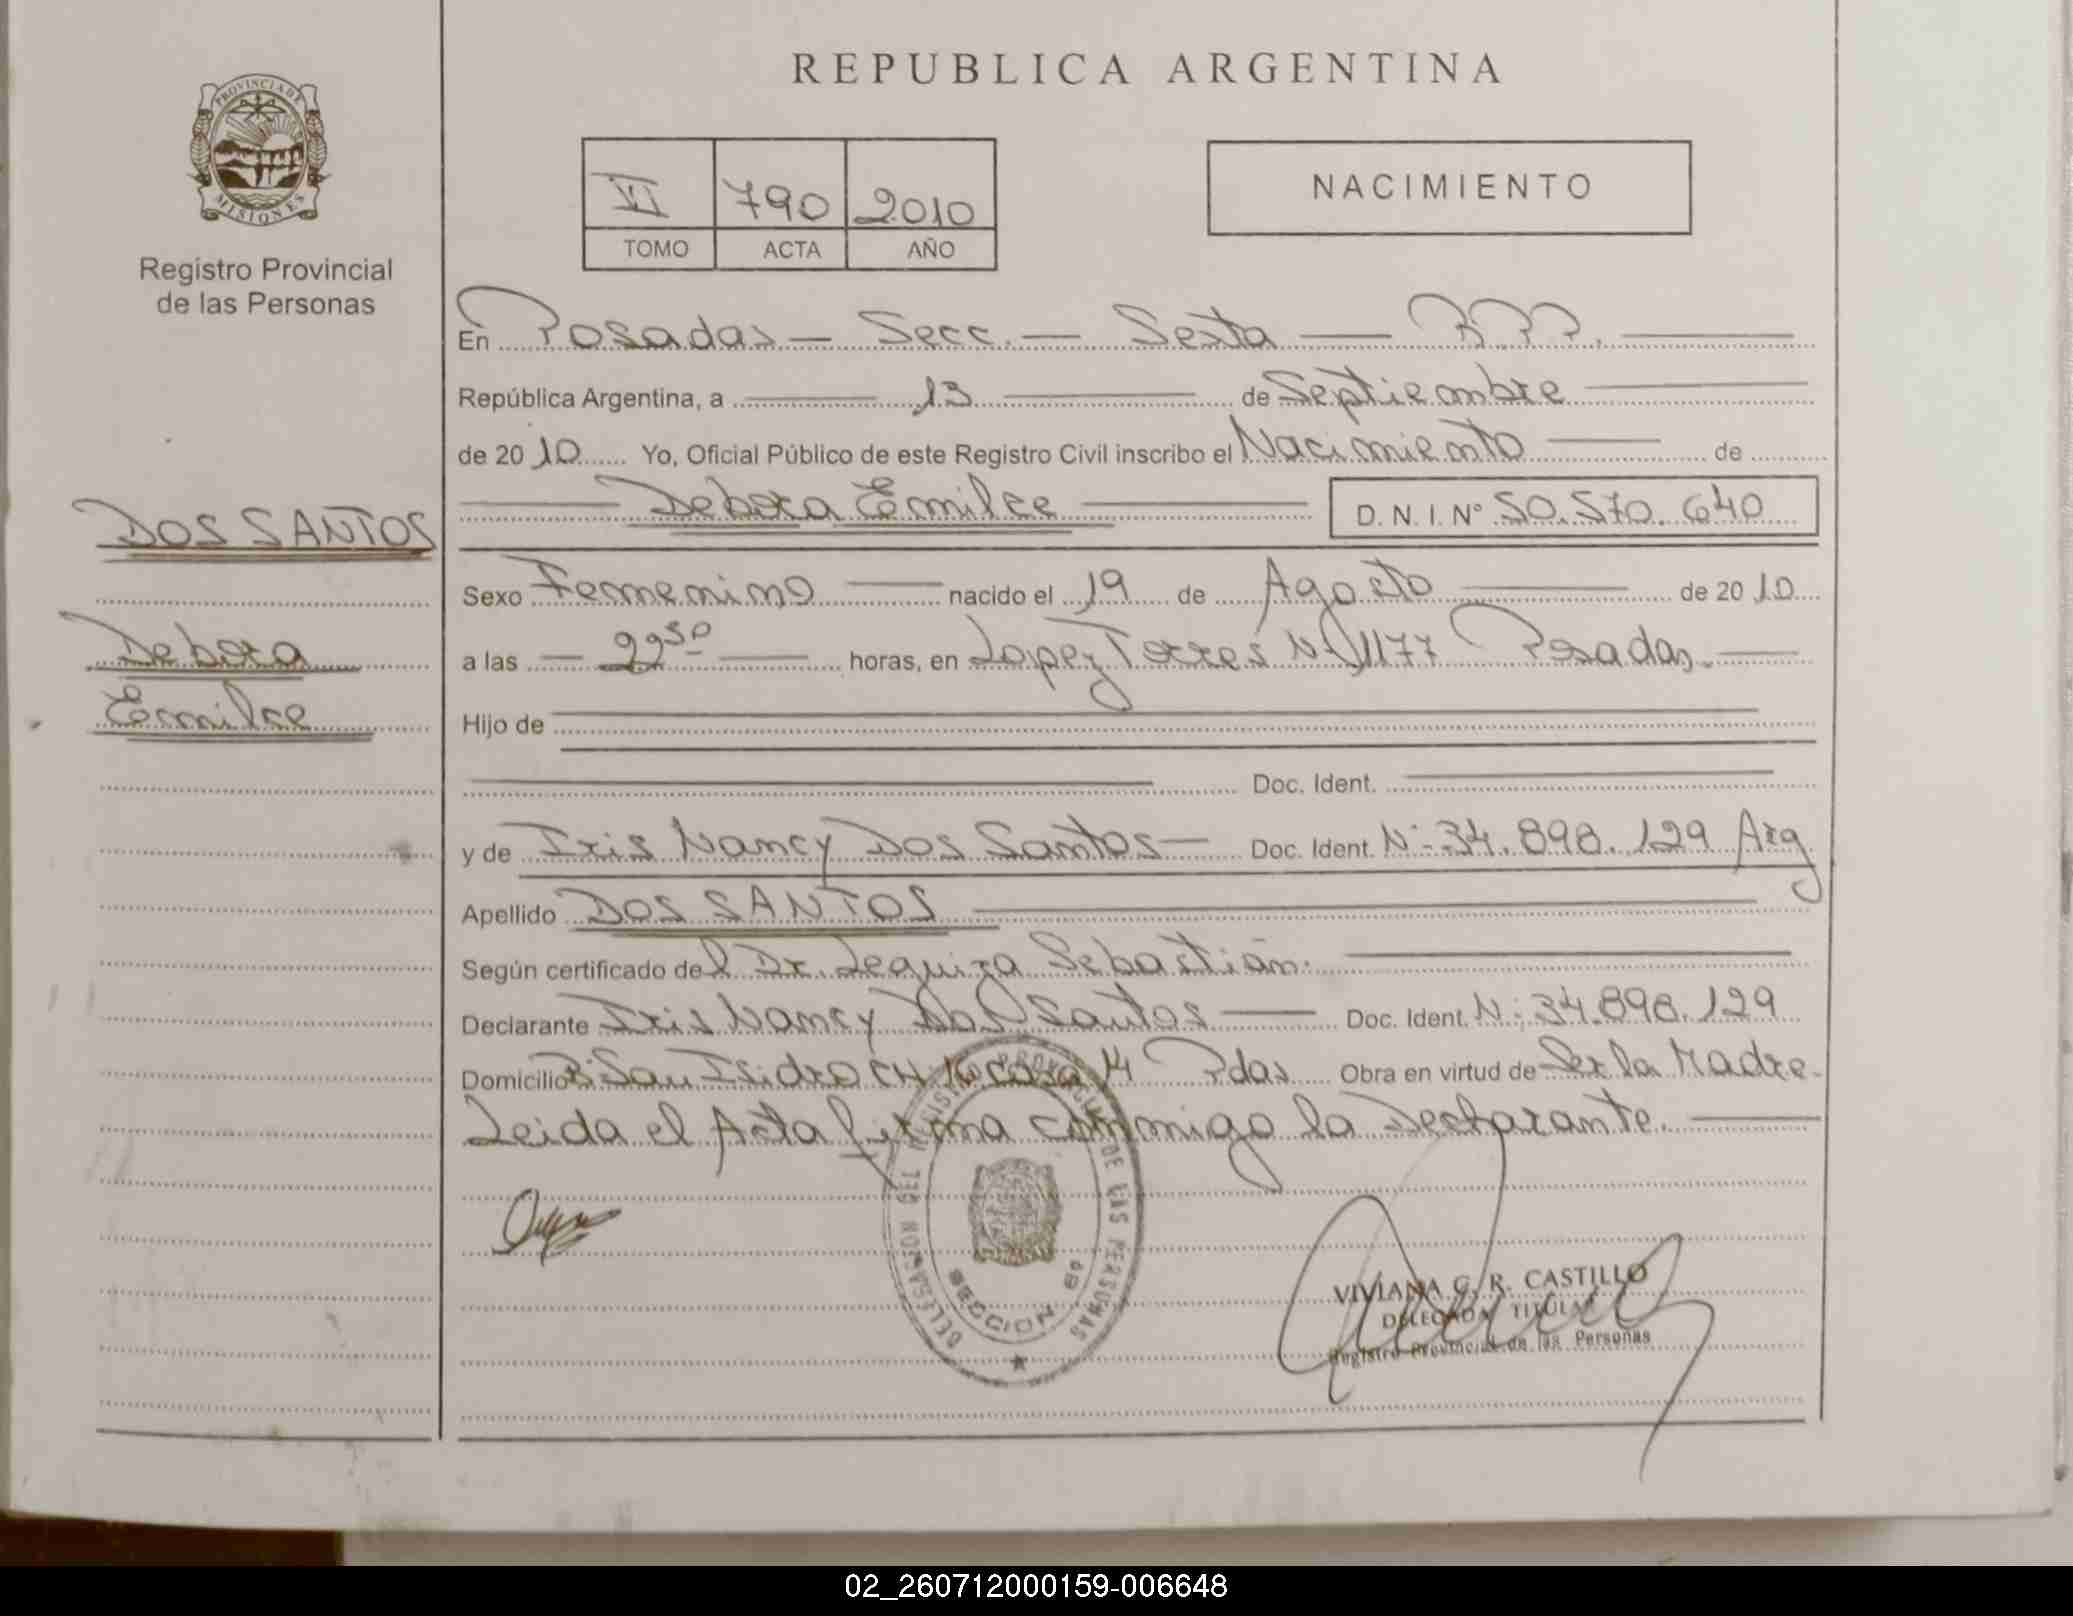 REPUBLICA ARGENTINA
PROVINCIA DE
MISIONES
Registro Provincial
de las Personas
VI 790 2010
TOMO ACTA AÑO
NACIMIENTO
En Posadas — Secc. — Sexta — R.P.P. —
República Argentina, a — 13 — de Septiembre —
de 2010 Yo, Oficial Público de este Registro Civil inscribo el Nacimiento — de
— Debora Emilce — D. N. I. N° 50.570.640
DOS SANTOS
Debora
Emilce
Sexo Femenino — nacido el 19 de Agosto — de 2010
a las — 22 30 — horas, en Lopez Torres Nº 1177 Posadas. —
Hijo de
Doc. Ident.
y de Iris Nancy Dos Santos — Doc. Ident. Nº 34.898.129 Arg
Apellido DOS SANTOS —
Según certificado del Dr. Leguiza Sebastián. —
Declarante Iris Nancy Dos Santos — Doc. Ident. Nº 34.898.129
Domicilio Bº San Isidro CH 16 casa 14 Pdas Obra en virtud de Ser la Madre.
Leida el Acta firma conmigo la Declarante. —
DELEGACION DEL REGISTRO PROVINCIAL DE LAS PERSONAS
SECCION 6ª
VIVIANA G. R. CASTILLO
DELEGADA TITULAR
Registro Provincial de las Personas
02_260712000159-006648